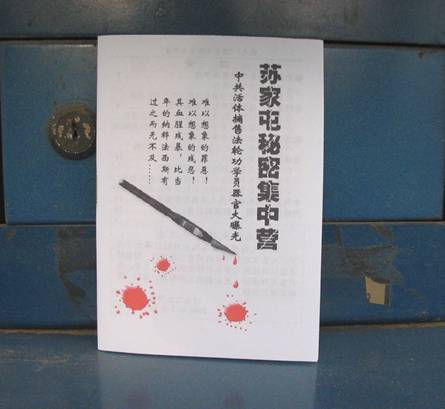 苏家屯秘密集中营
中共活体摘售法轮功学员器官大曝光
难以想象的罪恶！
难以想象的残忍！
其血腥残暴，比当
年的纳粹法西斯有
过之而无不及……